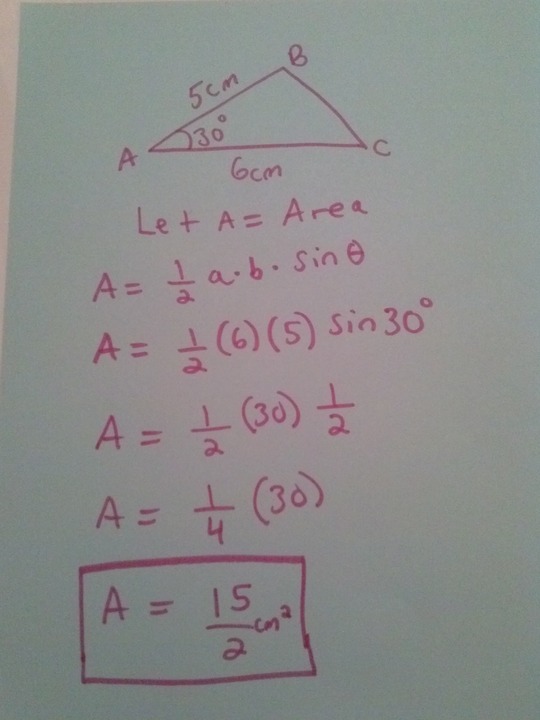 B
5cm
30°
A
C
6cm
Let A = Area
A = 1/2 a·b· sin θ
A = 1/2 (6)(5) sin 30°
A = 1/2 (30) 1/2
A = 1/4 (30)
A = 15/2 cm²